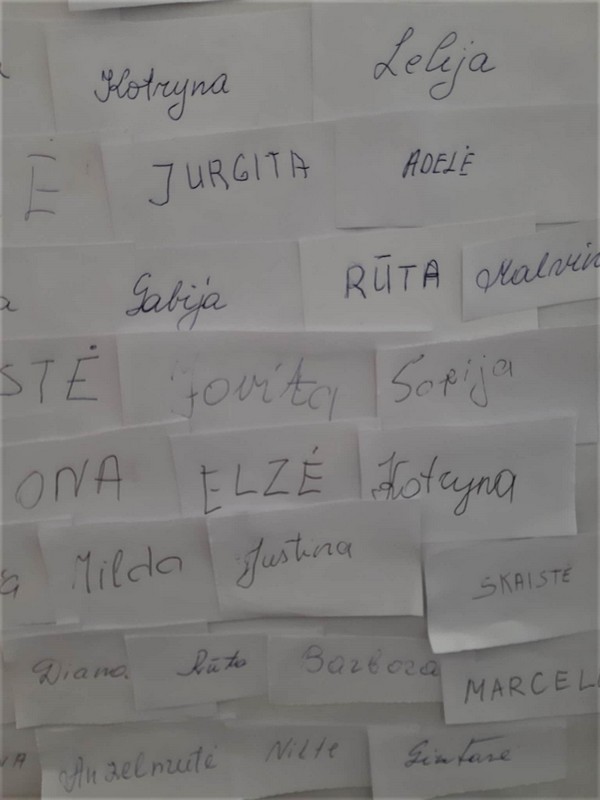 Kotryna Lelija
E JURGITA ADELĖ
a Gabija RŪTA Malvin
STĖ Jovita Sofija
ONA ELZĖ Kotryna
a Milda Justina
SKAISTĖ
Diana Rūta Barbora
MARCEL
VA Anzelmutė Gintarė